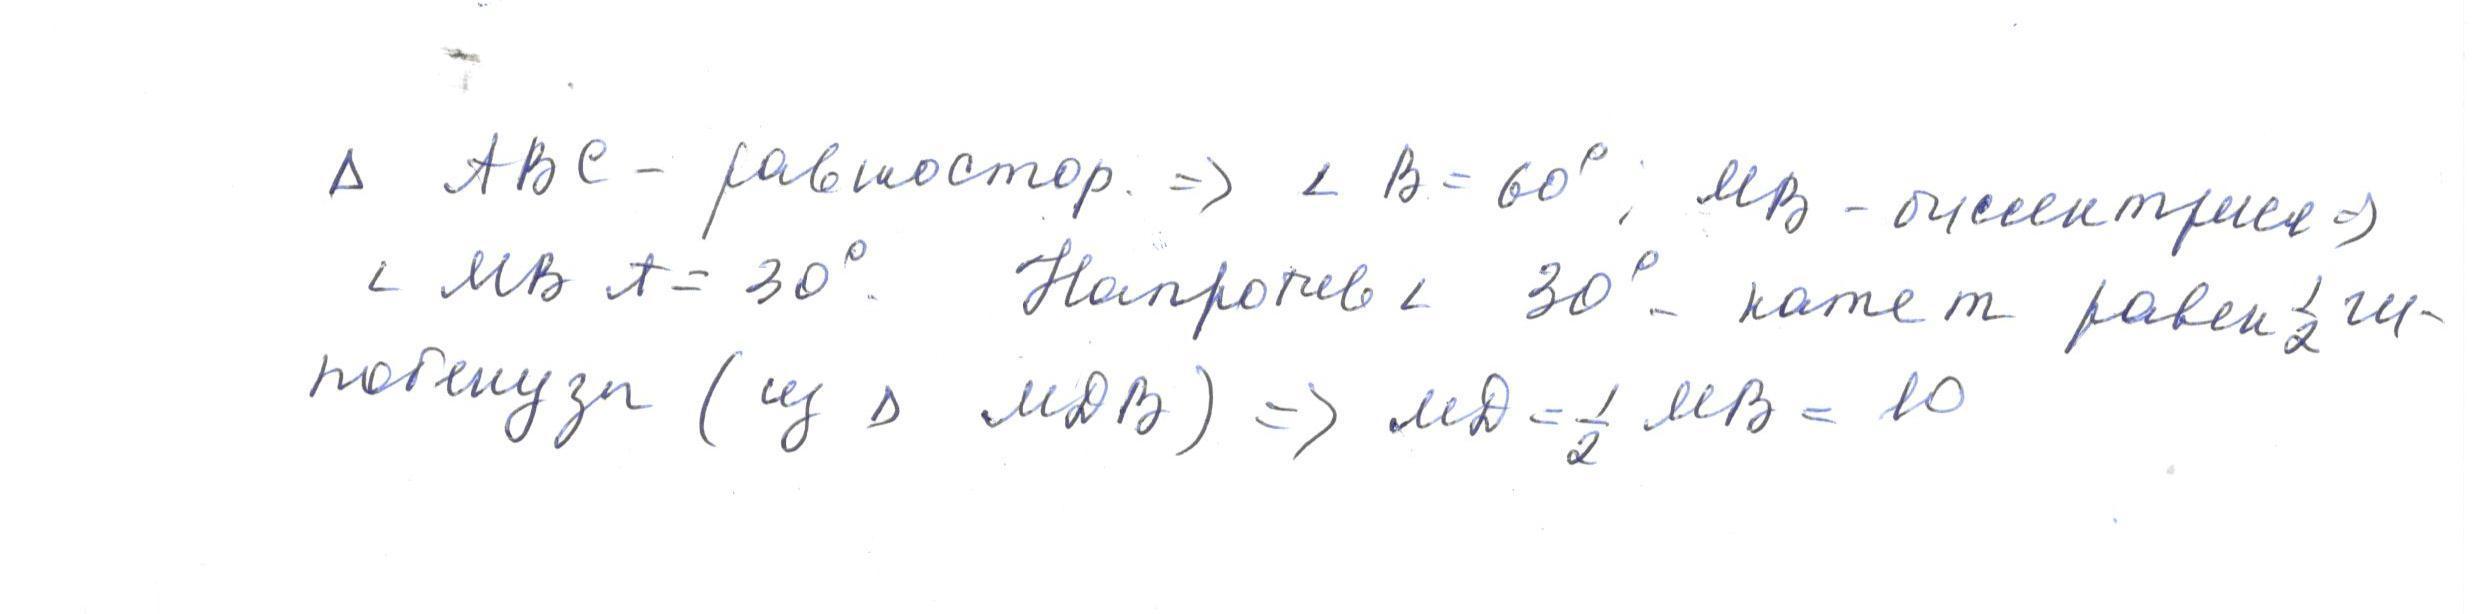 Δ ABC - равностор. => ∠ B = 60°; MB - биссектриса =>
∠ MBA = 30°. Напротив ∠ 30° - катет равен 1/2 ги-
потенузы (из Δ MDB) => MD = 1/2 MB = 10